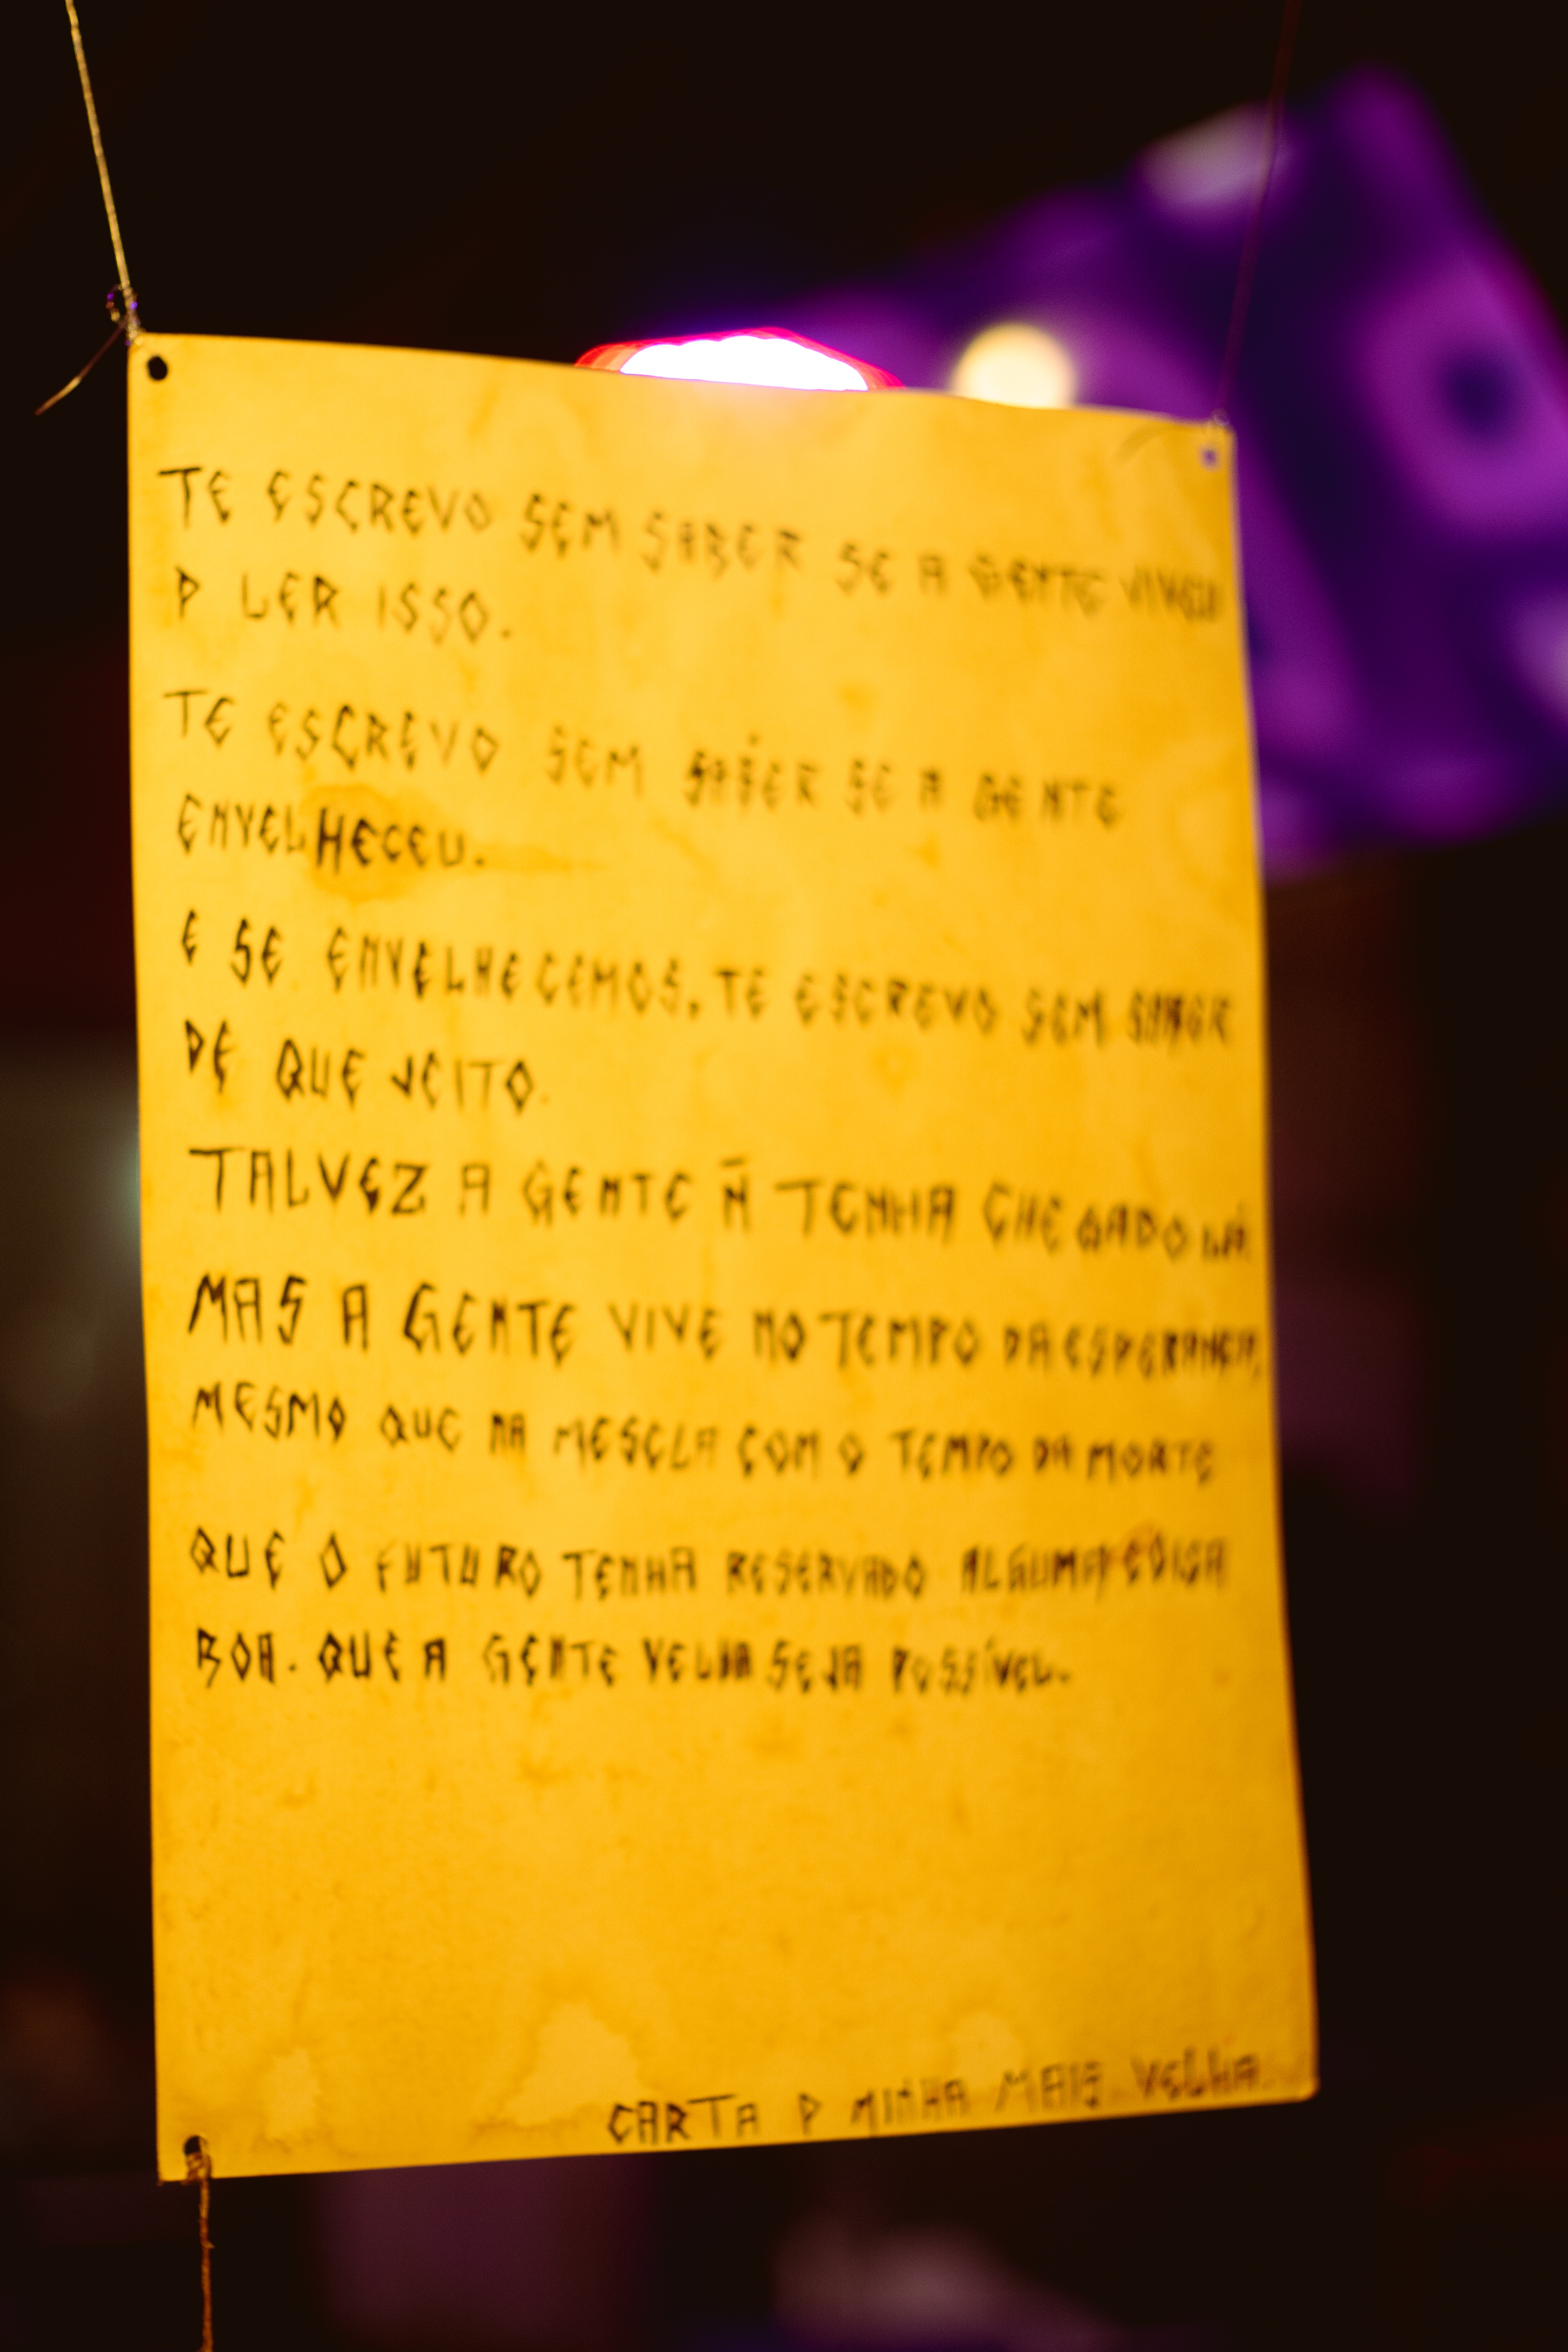 TE ESCREVO SEM SABER SE A GENTE VIVEU
P LER ISSO.
TE ESCREVO SEM SABER SE A GENTE
ENVELHECEU.
E SE ENVELHECEMOS, TE ESCREVO SEM SABER
DE QUE JEITO.
TALVEZ A GENTE Ñ TENHA CHEGADO LÁ
MAS A GENTE VIVE NO TEMPO DA ESPERANÇA,
MESMO QUE NA MESCLA COM O TEMPO DA MORTE
QUE O FUTURO TENHA RESERVADO ALGUMA COISA
BOA. QUE A GENTE VELHA SEJA POSSÍVEL.
CARTA P MINHA MAIS VELHA